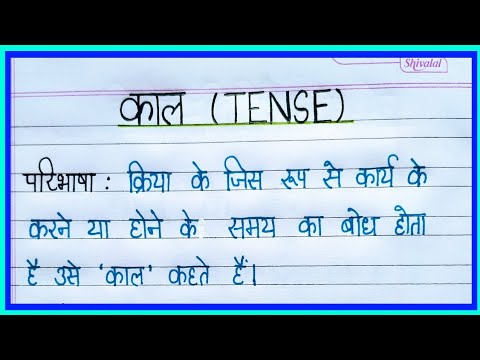 Shivalal
काल (TENSE)
परिभाषा : क्रिया के जिस रूप से कार्य के
करने या होने के समय का बोध होता
है उसे 'काल' कहते हैं।